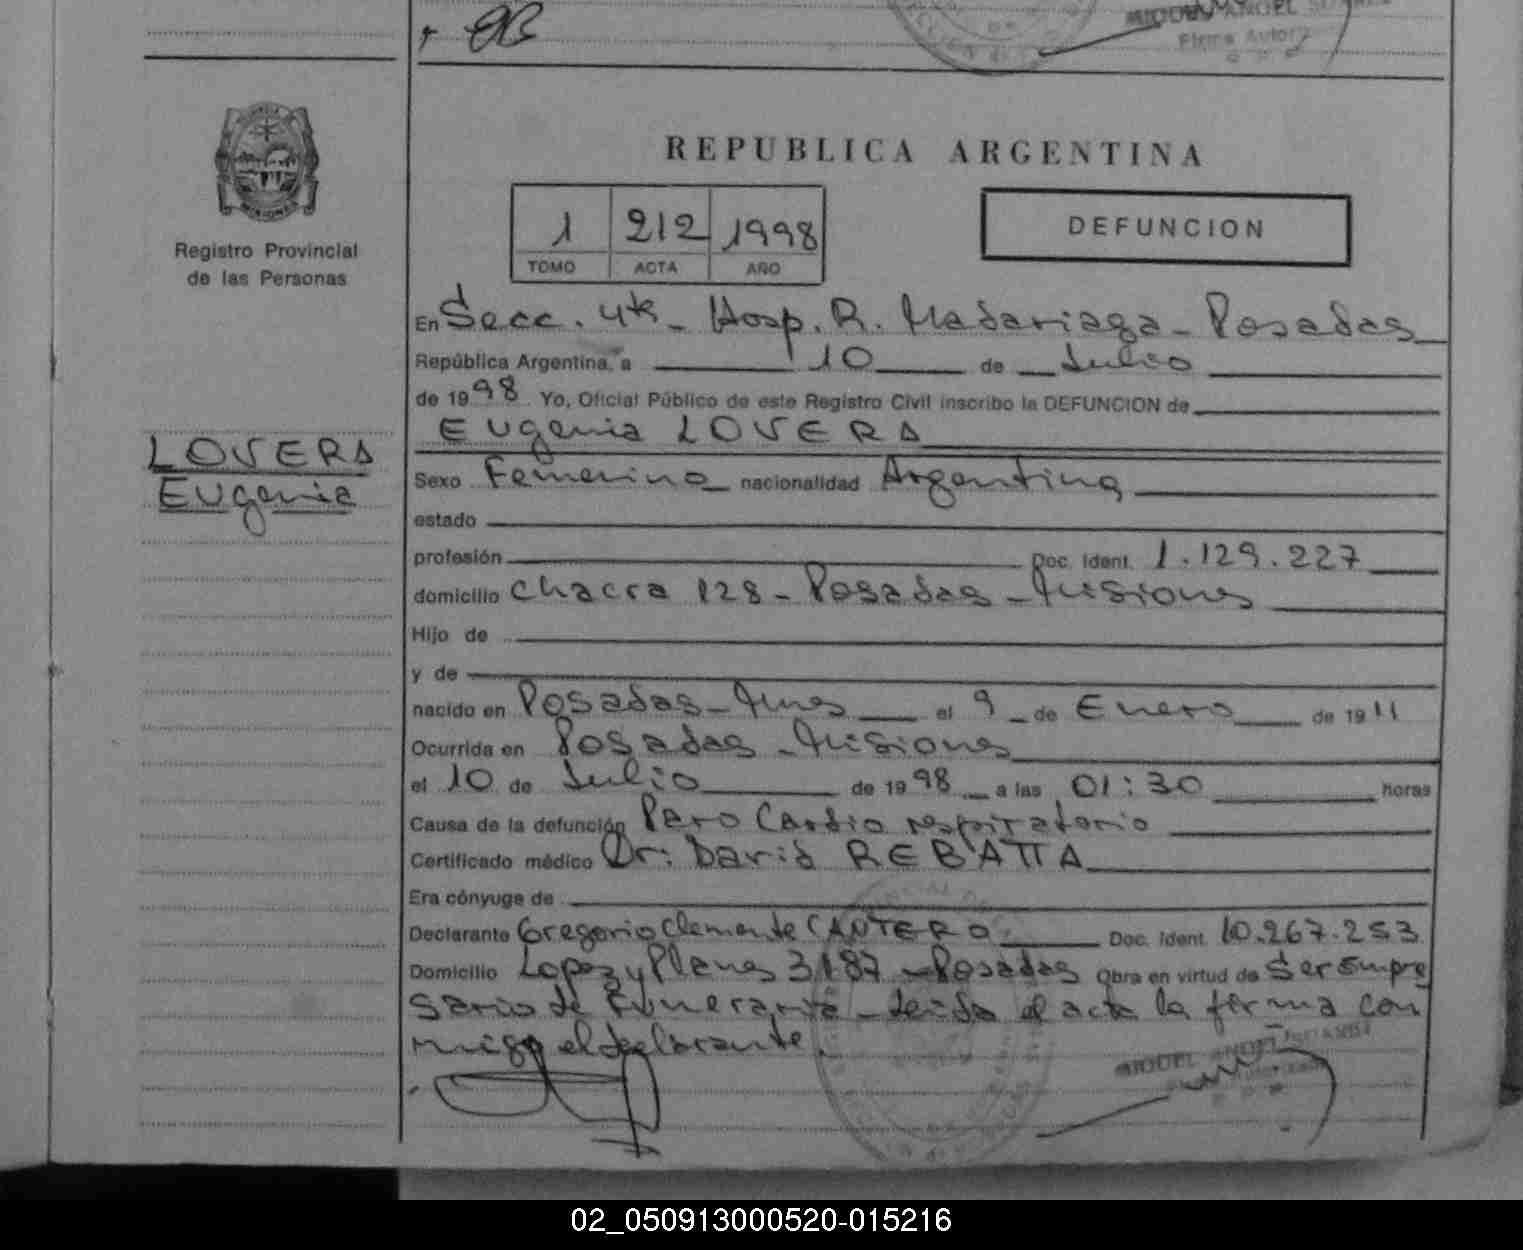 MIGUEL ANGEL
Firma Autoriz
MISIONES
Registro Provincial
de las Personas
REPUBLICA ARGENTINA
1 212 1998
TOMO ACTA AÑO
DEFUNCION
LOVERA
Eugenia
En Secc. 4ta - Hosp. R. Madariaga - Posadas
República Argentina, a 10 de Julio
de 1998 Yo, Oficial Público de este Registro Civil inscribo la DEFUNCION de
Eugenia LOVERA
Sexo Femenino nacionalidad Argentina
estado
profesión Doc. Ident. 1.129.227
domicilio Chacra 128 - Posadas - Misiones
Hijo de
y de
nacido en Posadas - Mnes el 9 de Enero de 1911
Ocurrida en Posadas - Misiones
el 10 de Julio de 1998 a las 01:30 horas
Causa de la defunción Paro Cardio respiratorio
Certificado médico Dr: David REBATTA
Era cónyuge de
Declarante Gregorio Clemente CANTERO Doc. Ident. 10.267.253
Domicilio Lopez y Planes 3187 - Posadas Obra en virtud de Ser Empre
sario de Funeraria - Leida el acta la firma con
migo el declarante.
MIGUEL ANGEL
02_050913000520-015216